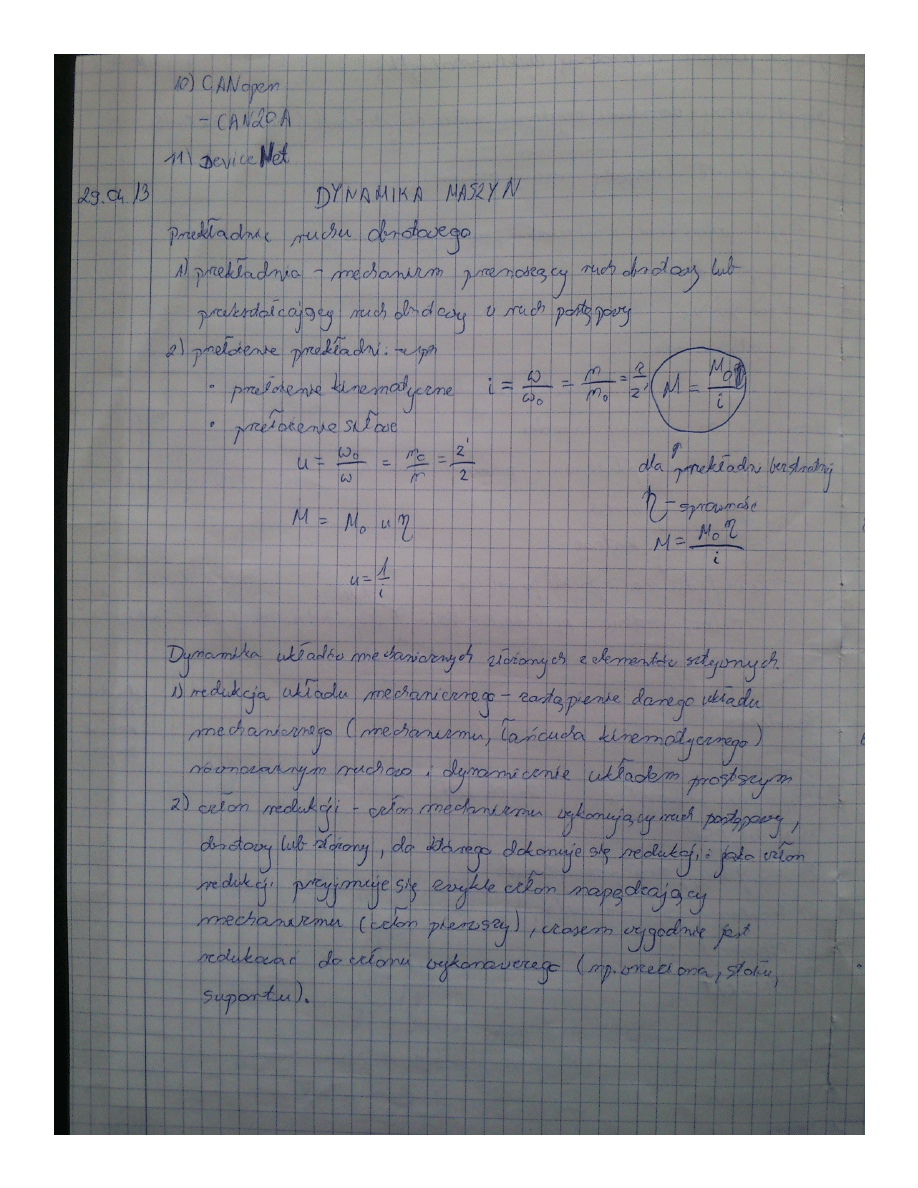 10) CANopen
- CAN20A
11) DeviceNet
29.04.13 DYNAMIKA MASZYN
przekładnie ruchu obrotowego
1) przekładnia - mechanizm przenoszący ruch obrotowy lub
przekształcający ruch obrotowy w ruch postępowy
2) przełożenie przekładni:
• przełożenie kinematyczne i = ω/ω₀ = n/n₀ = z/z' M = M₀/i
• przełożenie siłowe
u = ω₀/ω = n₀/n = z'/z
dla przekładni bezstratnej
η - sprawność
M = M₀ u η
M = M₀ η/i
u = 1/i
Dynamika układów mechanicznych złożonych z elementów sztywnych.
1) redukcja układu mechanicznego - zastąpienie danego układu
mechanicznego (mechanizmu, łańcucha kinematycznego)
równoważnym ruchowo i dynamicznie układem prostszym
2) człon redukcji - człon mechanizmu wykonujący ruch postępowy,
obrotowy lub złożony, do którego dokonuje się redukcji; jako człon
redukcji przyjmuje się zwykle człon napędzający
mechanizmu (człon pierwszy), czasem wygodnie jest
redukować do członu wykonawczego (np. wrzeciona, stołu,
suportu).